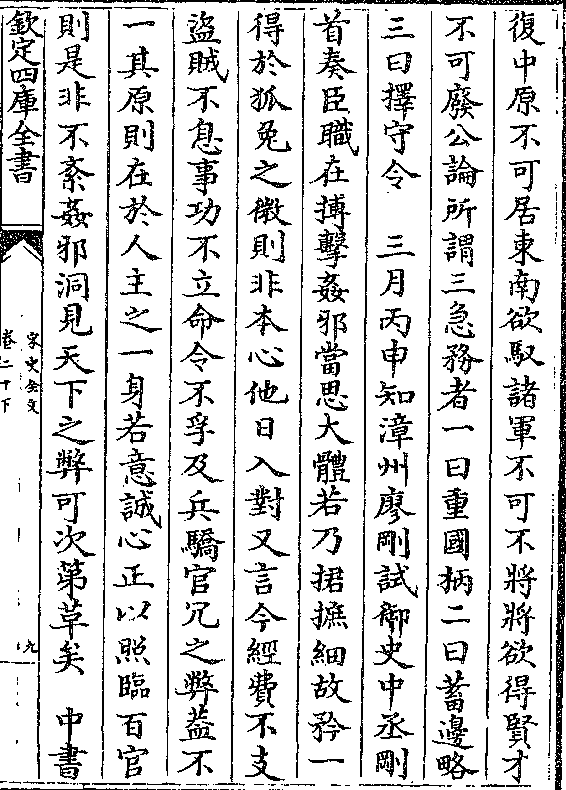 復中原不可居東南欲馭諸軍不可不將將欲得賢才
不可廢公論所謂三急務者一曰重國柄二曰蓄邊略
三曰擇守令　三月丙申知漳州廖剛試御史中丞剛
首奏臣職在搏擊姦邪當思大體若乃捃摭細故矜一
得於狐兔之微則非本心他日入對又言今經費不支
盜賊不息事功不立命令不孚及兵驕官冗之弊葢不
一其原則在於人主之一身若意誠心正以照臨百官
則是非不紊姦邪洞見天下之弊可次第革矣　中書
欽定四庫全書
宋史全文
卷二十下
九